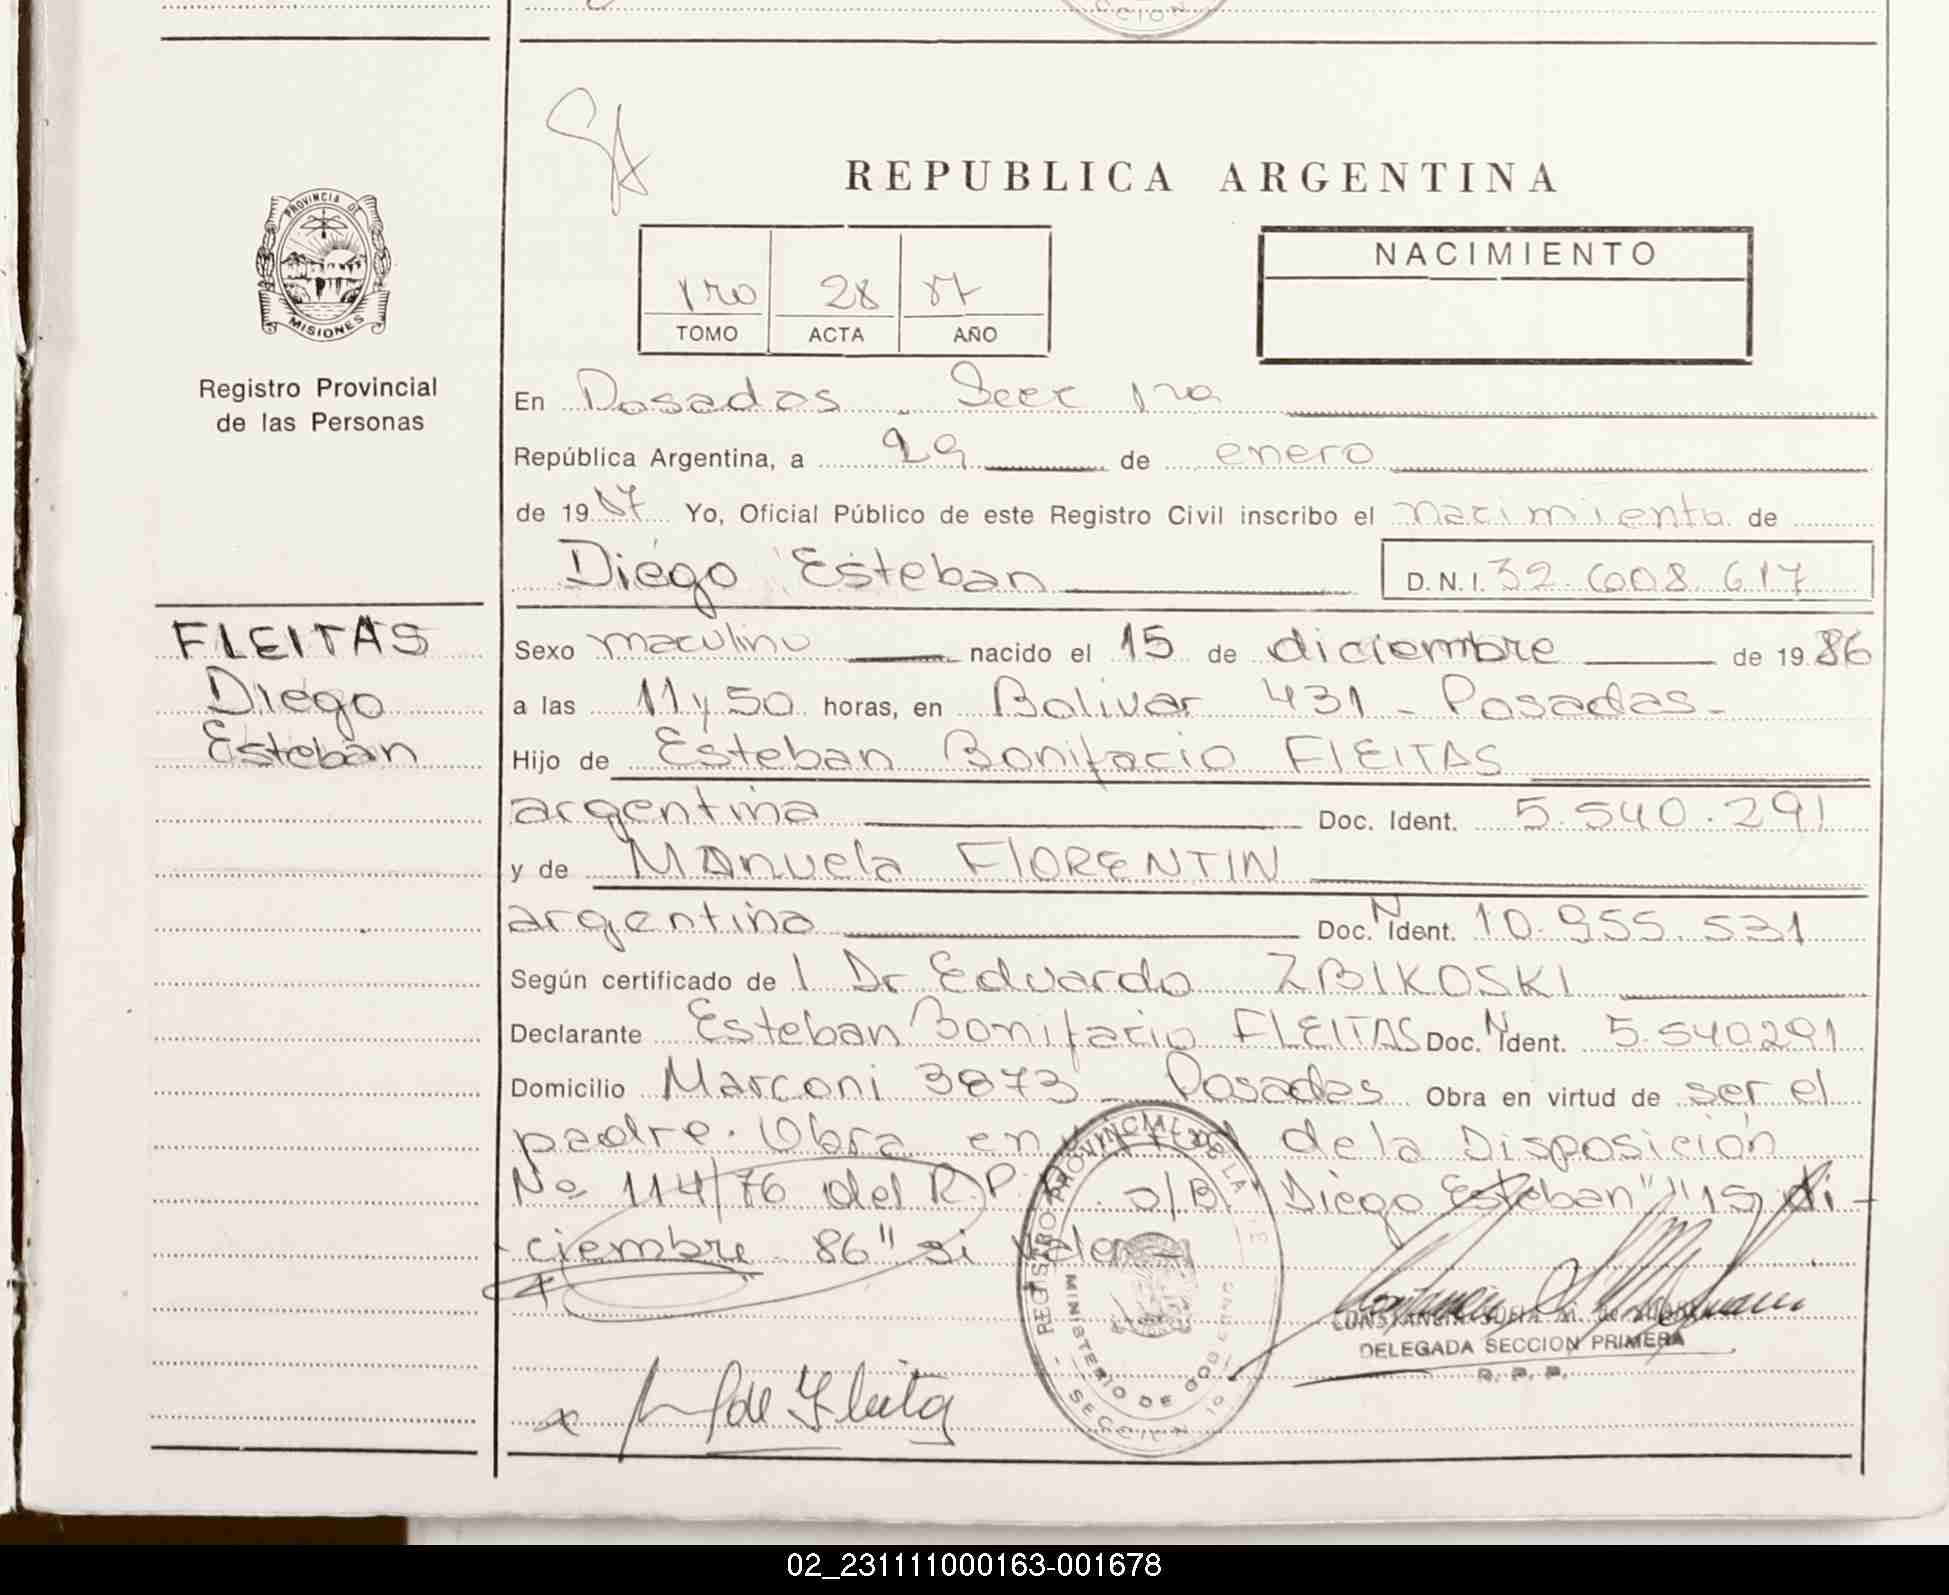 CCION
REPUBLICA ARGENTINA
PROVINCIA DE
MISIONES
Registro Provincial
de las Personas
1ro 28 87
TOMO ACTA AÑO
NACIMIENTO
En Posadas. Secc 1ra
República Argentina, a 29 de enero
de 1987 Yo, Oficial Público de este Registro Civil inscribo el nacimiento de
Diego Esteban D.N.I. 32.608.617
FLEITAS
Diego
Esteban
Sexo maculino nacido el 15 de diciembre de 1986
a las 11 y 50 horas, en Bolivar 431 - Posadas-
Hijo de Esteban Bonifacio FLEITAS
argentina Doc. Ident. 5.540.291
y de Manuela FLORENTIN
argentina Doc. N Ident. 10.955.531
Según certificado de l Dr Eduardo ZBIKOSKI
Declarante Esteban Bonifacio FLEITAS Doc. N Ident. 5.540291
Domicilio Marconi 3873 - Posadas Obra en virtud de ser el
padre. Obra en de la Disposición
Nº 114/76 del R.P. s/B. "Diego Esteban" "15 di-
ciembre 86" si vale-
REGISTRO PROVINCIAL DE LA
MINISTERIO DE GOBIERNO
SECCION 1º
DELEGADA SECCION PRIMERA
R. P. P.
x de Fleita
02_231111000163-001678